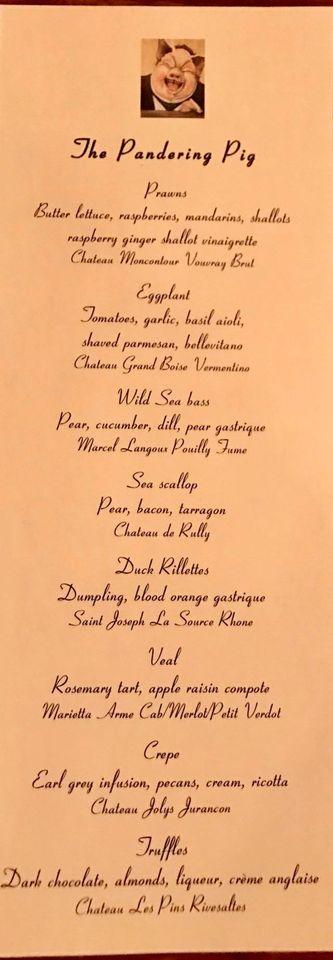 The Pandering Pig
Prawns
Butter lettuce, raspberries, mandarins, shallots
raspberry ginger shallot vinaigrette
Chateau Moncontour Vouvray Brut
Eggplant
Tomatoes, garlic, basil aioli,
shaved parmesan, bellevitano
Chateau Grand Boise Vermentino
Wild Sea bass
Pear, cucumber, dill, pear gastrique
Marcel Langoux Pouilly Fume
Sea scallop
Pear, bacon, tarragon
Chateau de Rully
Duck Rillettes
Dumpling, blood orange gastrique
Saint Joseph La Source Rhone
Veal
Rosemary tart, apple raisin compote
Marietta Arme Cab/Merlot/Petit Verdot
Crepe
Earl grey infusion, pecans, cream, ricotta
Chateau Jolys Jurancon
Truffles
Dark chocolate, almonds, liqueur, crème anglaise
Chateau Les Pins Rivesaltes